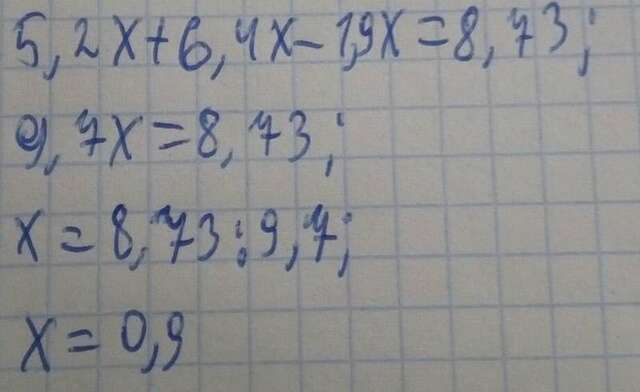 5,2x+6,4x-1,9x=8,73;
9,7x=8,73;
x=8,73:9,7;
x=0,9